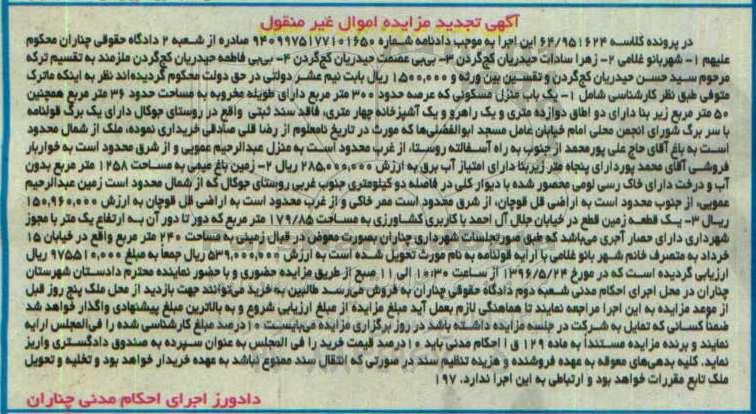 آگهی تجدید مزایده اموال غیر منقول
در پرونده کلاسه ۶۴/۹۵۱۶۲۴ این اجرا به موجب دادنامه شماره ۹۴۰۹۹۷۵۱۷۷۱۰۱۶۵۰ صادره از شعبه ۲ دادگاه حقوقی چناران محکوم
علیهم ۱- شهربانو غلامی ۲- زهرا سادات حیدریان کج‌گردن ۳- بی‌بی عصمت حیدریان کج‌گردن ۴- بی‌بی فاطمه حیدریان کج‌گردن ملزمند به تقسیم ترکه
مرحوم سید حسن حیدریان کج‌گردن و تقسیم بین ورثه و ۱۵۰۰,۰۰۰ ریال بابت نیم عشر دولتی در حق دولت محکوم گردیده‌اند نظر به اینکه ماترک
متوفی طبق نظر کارشناسی شامل ۱- یک باب منزل مسکونی که عرصه حدود ۳۰۰ متر مربع دارای طویله مخروبه به مساحت حدود ۳۶ متر مربع همچنین
۵۰ متر مربع زیر بنا دارای دو اطاق دوازده متری و یک راهرو و یک آشپزخانه چهار متری، فاقد سند ثبتی واقع در روستای جوکال دارای یک برگ قولنامه
با سر برگ شورای انجمن محلی امام خیابان عامل مسجد ابوالفضلی‌ها که مورث در تاریخ نامعلوم از رضا قلی صادقی خریداری نموده، ملک از شمال محدود
است به باغ آقای حاج علی پورمحمد از جنوب به راه آسفالته روستا، از غرب محدود است به منزل عبدالرحیم عمویی و از شرق محدود است به خواربار
فروشی آقای محمد پوردارای پنجاه متر زیربنا دارای امتیاز آب برق به ارزش ۲۸۵,۰۰۰,۰۰۰ ریال ۲- زمین باغ میمی به مساحت ۱۲۵۸ متر مربع بدون
آب و درخت دارای خاک رسی لومی محصور شده با دیوار کلی در فاصله دو کیلومتری جنوب غربی روستای جوکال که از شمال محدود است زمین عبدالرحیم
عمویی، از جنوب محدود است به اراضی قل قوچان، از شرق محدود است ممر خاکی و از غرب محدود است به اراضی قل قوچان به ارزش ۱۵۰,۹۶۰,۰۰۰
ریال ۳- یک قطعه زمین قطع در خیابان جلال آل احمد با کاربری کشاورزی به مساحت ۱۷۹/۸۵ متر مربع که دور تا دور آن به ارتفاع یک متر با مجوز
شهرداری دارای حصار آجری می‌باشد که طبق صورتجلسات شهرداری چناران بصورت معوض در قبال زمینی به مساحت ۲۴۰ متر مربع واقع در خیابان ۱۵
خرداد به متصرف خانم شهر بانو غلامی با ارایه قولنامه به نام مورث تحویل شده است به ارزش ۵۳۹,۰۰۰,۰۰۰ ریال جمعاً به مبلغ ۹۷۵۵۱۰,۰۰۰
ارزیابی گردیده است که در مورخ ۱۳۹۶/۵/۲۴ از ساعت ۱۰:۳۰ الی ۱۱ صبح از طریق مزایده حضوری و با حضور نماینده محترم دادستان شهرستان
چناران در محل اجرای احکام مدنی شعبه دوم دادگاه حقوقی چناران به فروش می‌رسد طالبین به خرید می‌توانند جهت بازدید از محل ملک پنج روز قبل
از موعد مزایده به این اجرا مراجعه نمایند تا هماهنگی لازم بعمل آید مبلغ مزایده از مبلغ ارزیابی شروع و به بالاترین مبلغ پیشنهادی واگذار خواهد شد
ضمناً کسانی که تمایل به شرکت در جلسه مزایده داشته باشد در روز برگزاری مزایده می‌بایست ۱۰درصد مبلغ کارشناسی شده را فی‌المجلس ارایه
نمایند و برنده مزایده مستنداً به ماده ۱۲۹ ق ا احکام مدنی باید ۱۰درصد قیمت خرید را فی المجلس به عنوان سپرده به صندوق دادگستری واریز
نماید. کلیه بدهی‌های معوقه به عهده فروشنده و هزینه تنظیم سند در صورتی که انتقال سند ممنوع نباشد به عهده خریدار خواهد بود و تخلیه و تحویل
ملک تابع مقررات خواهد بود و ارتباطی به این اجرا ندارد. ۱۹۷
دادورز اجرای احکام مدنی چناران